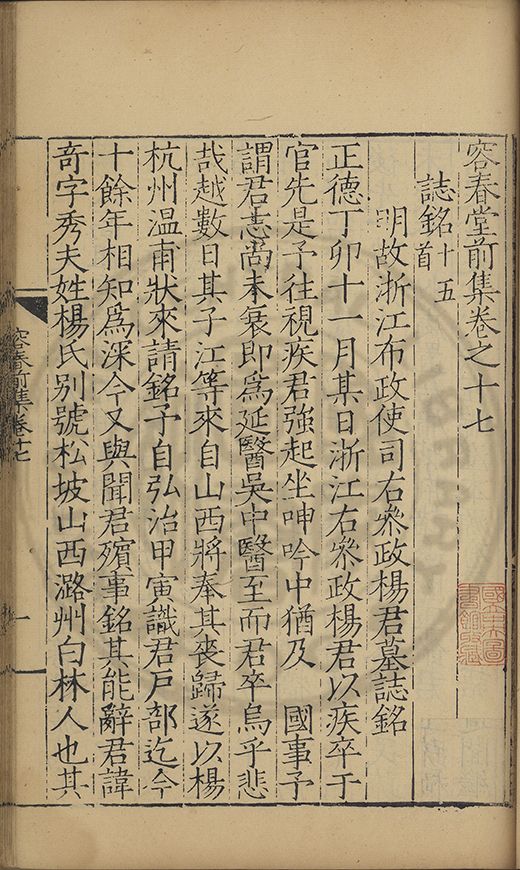 容春堂前集卷之十七
誌銘十五首
明故浙江布政使司右叅政楊君墓誌銘
正德丁卯十一月某日浙江右叅政楊君以疾卒于
官先是予往視疾君強起坐呻吟中猶及 國事予
謂君志尚未衰即為延醫吳中醫至而君卒烏乎悲
哉越數日其子江等來自山西將奉其喪歸遂以楊
杭州温甫狀來請銘予自弘治甲寅識君戶部迄今
十餘年相知為深今又與聞君殯事銘其能辭君諱
奇字秀夫姓楊氏別號松坡山西潞州白林人也其
容春前集卷十七
一